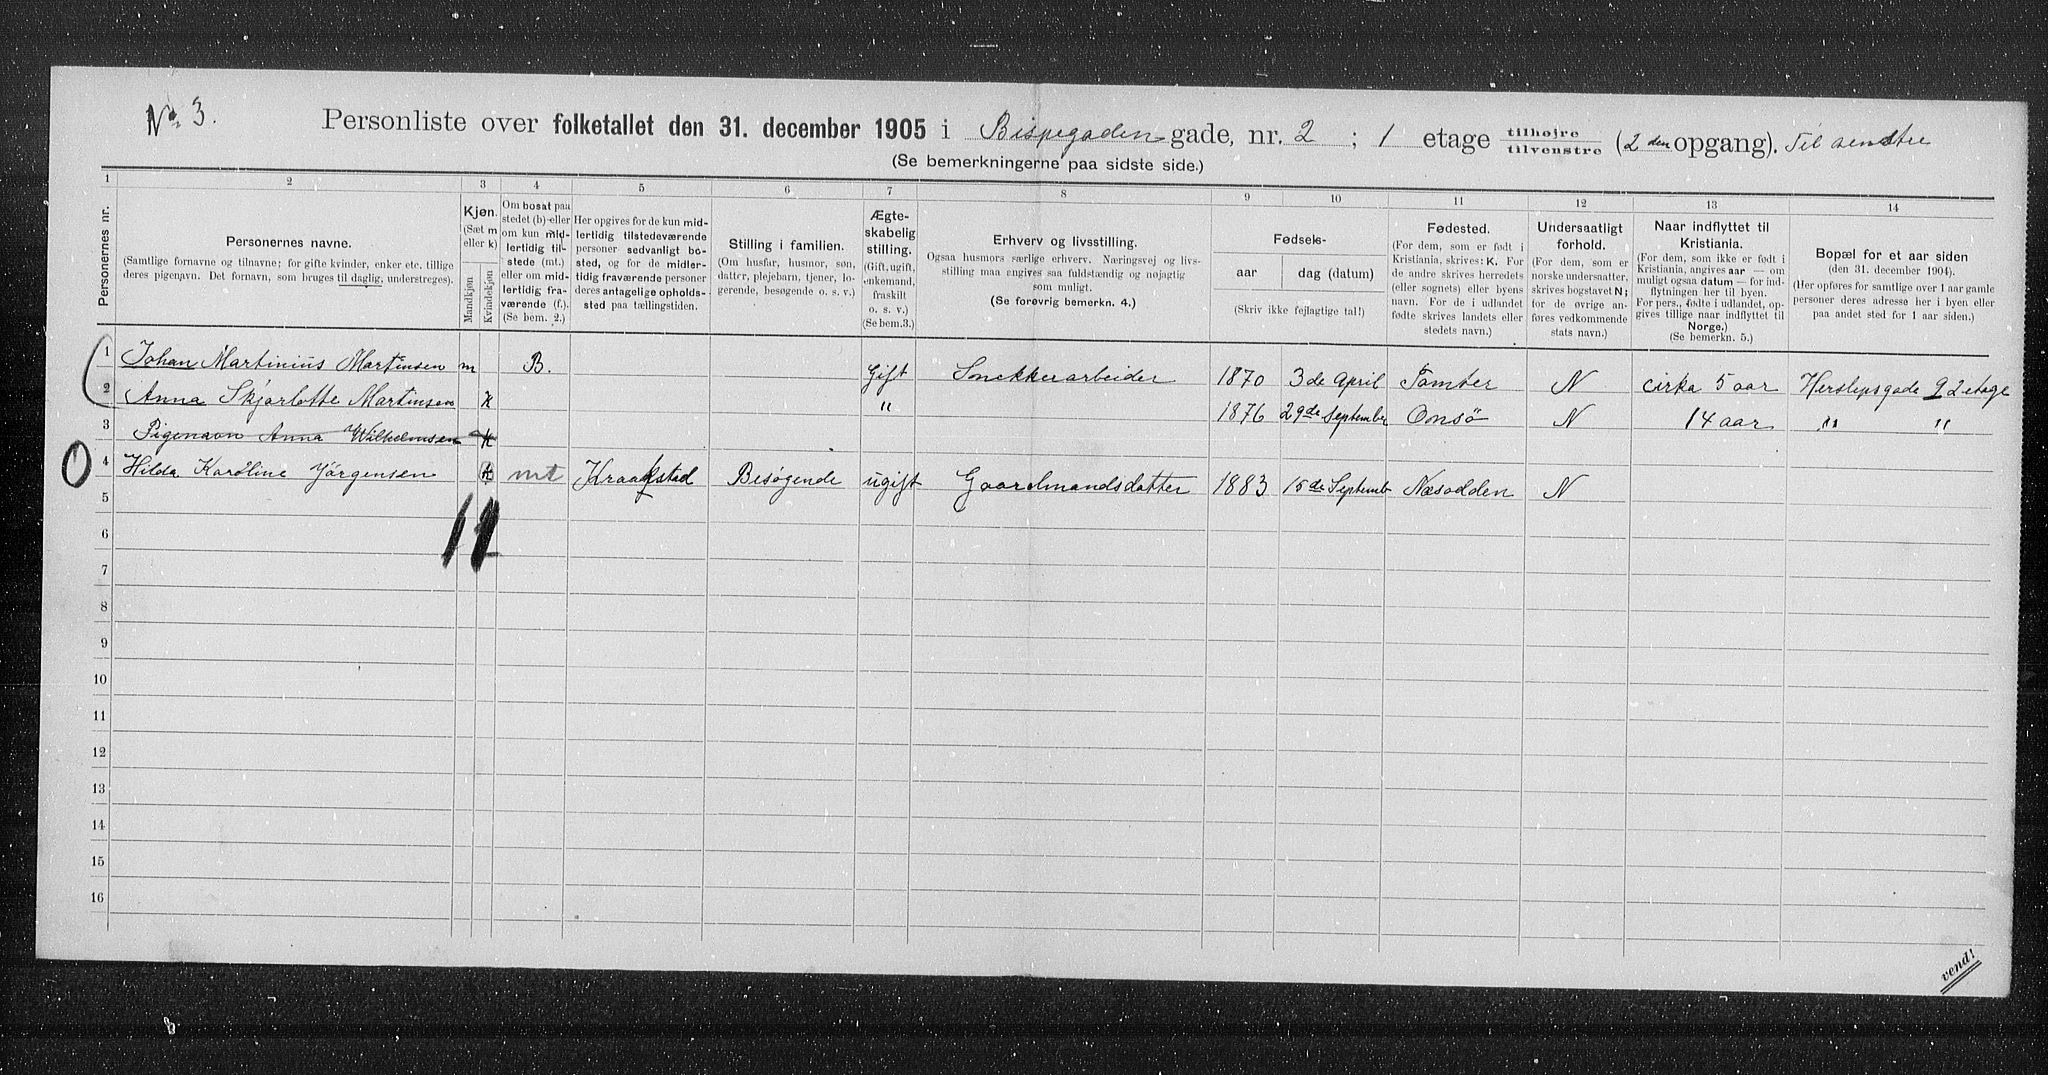 No. 3. Personliste over folketallet den 31. december 1905 i Bispegaden gade, nr. 2 ; 1 etage tilhøjre tilvenstre (2 den opgang). Til venstre
(Se bemerkningerne paa sidste side.)
1 2 3 4 5 6 7 8 9 10 11 12 13 14
Personernes nr.
Personernes navne.
(Samtlige fornavne og tilnavne; for gifte kvinder, enker etc. tillige
deres pigenavn. Det fornavn, som bruges til daglig, understreges).
Kjøn.
(Sæt m
eller k)
Mandkjøn
Kvindekjøn
Om bosat paa
stedet (b) eller
om kun mid-
lertidig til-
stede (mt.)
eller om mid-
lertidig fra-
værende (f.).
(Se bem. 2.)
Her opgives for de kun mid-
lertidig tilstedeværende
personer sedvanlig bo-
sted, og for de midler-
tidig fraværende personer
deres antagelige opholds-
sted paa tællingstiden.
Stilling i familien.
(Om husfar, husmor, søn,
datter, plejebarn, tjener, lo-
gerende, besøgende o. s. v.)
Ægte-
skabelig
stilling.
(Gift, ugift,
enkemand,
fraskilt
o. s. v.)
(Se bem.3.)
Erhverv og livsstilling.
Ogsaa husmors særlige erhverv. Næringsvej og livs-
stilling maa angives saa fuldstændig og nøjagtig
som muligt.
(Se forøvrig bemerkn. 4.)
Fødsels-
aar dag (datum)
(Skriv ikke fejlagtige tal!)
Fødested.
(For dem, som er født i
Kristiania, skrives: K. For
de andre skrives herredets
(eller sognets) eller byens
navn. For de i udlandet
fødte skrives landets eller
stedets navn.)
Undersaatligt
forhold.
(For dem, som er
norske undersaatter,
skrives bogstavet N;
for de øvrige an-
føres vedkommende
stats navn.)
Naar indflyttet til
Kristiania.
(For dem, som ikke er født i
Kristiania, angives aar — om
muligt ogsaa datum — for ind-
flytningen her til byen.
For pers., fødte i udlandet, op-
gives tillige naar indflyttet til
Norge.)
(Se bemerkn. 5.)
Bopæl for et aar siden
(den 31. december 1904.)
(Her opføres for samtlige over 1 aar gamle
personer deres adresse her i byen eller
paa andet sted for 1 aar siden.)
1 Johan Martinius Martinsen m B. Gift Snekkerarbeider 1870 3 de April Tomter N cirka 5 aar Herslepsgade 9 2 etage
2 Anna Skjarlotte Martinsen K " 1876 29de September Onsø N 14 aar " "
3 Pigenavn Anna Wilhelmsen K
4 Hilda Karoline Jørgensen K mt Kraakstad Besøgende ugift Gaardmandsdatter 1883 15 de Septemb Næsodden N
5
6
7
8
9
10
11
12
13
14
15
16
vend!